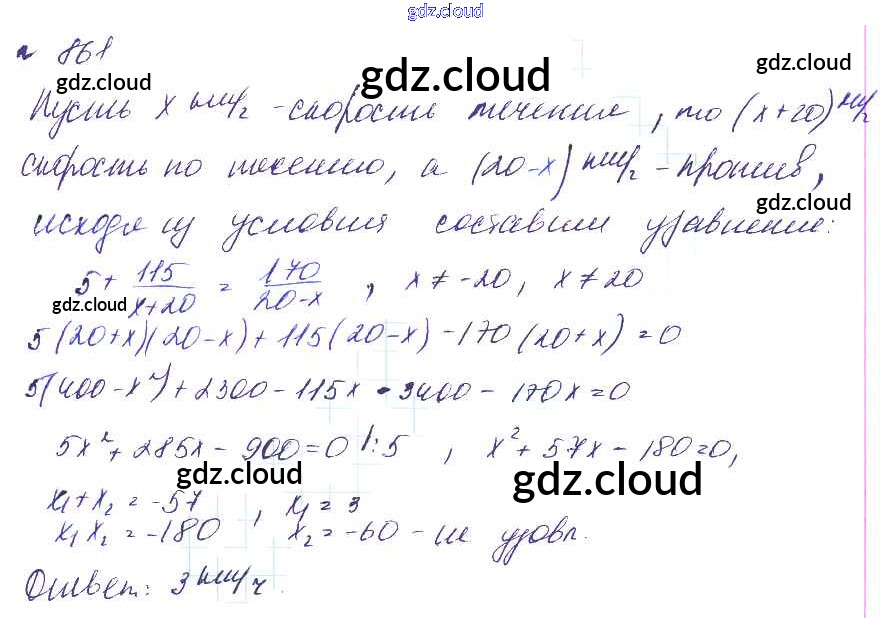 gdz.cloud
№ 861
gdz.cloud gdz.cloud gdz.cloud
Пусть x км/ч - скорость течения, то (x+20) км/ч
скорость по течению, а (20-x) км/ч - против,
gdz.cloud
исходя из условия составим уравнение:
5 + 115/(x+20) = 170/(20-x), x ≠ -20, x ≠ 20
gdz.cloud
5(20+x)(20-x)+115(20-x)-170(20+x)=0
5(400-x²)+2300-115x-3400-170x=0
5x²+285x-900=0 |:5, x²+57x-180=0,
gdz.cloud gdz.cloud
x₁+x₂=-57, x₁=3
x₁x₂=-180 x₂=-60 - не удовл.
Ответ: 3 км/ч.